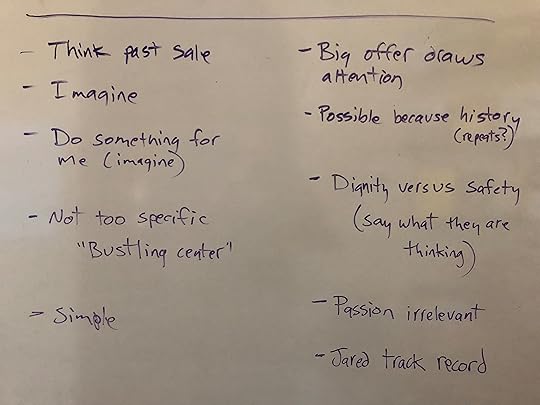 - Think past sale
- Imagine
- Do something for
me (imagine)
- Not too specific
"Bustling center"
- Simple
- Big offer draws
attention
- Possible because history
(repeats?)
- Dignity versus safety
(say what they are
thinking)
- Passion irrelevant
- Jared track record